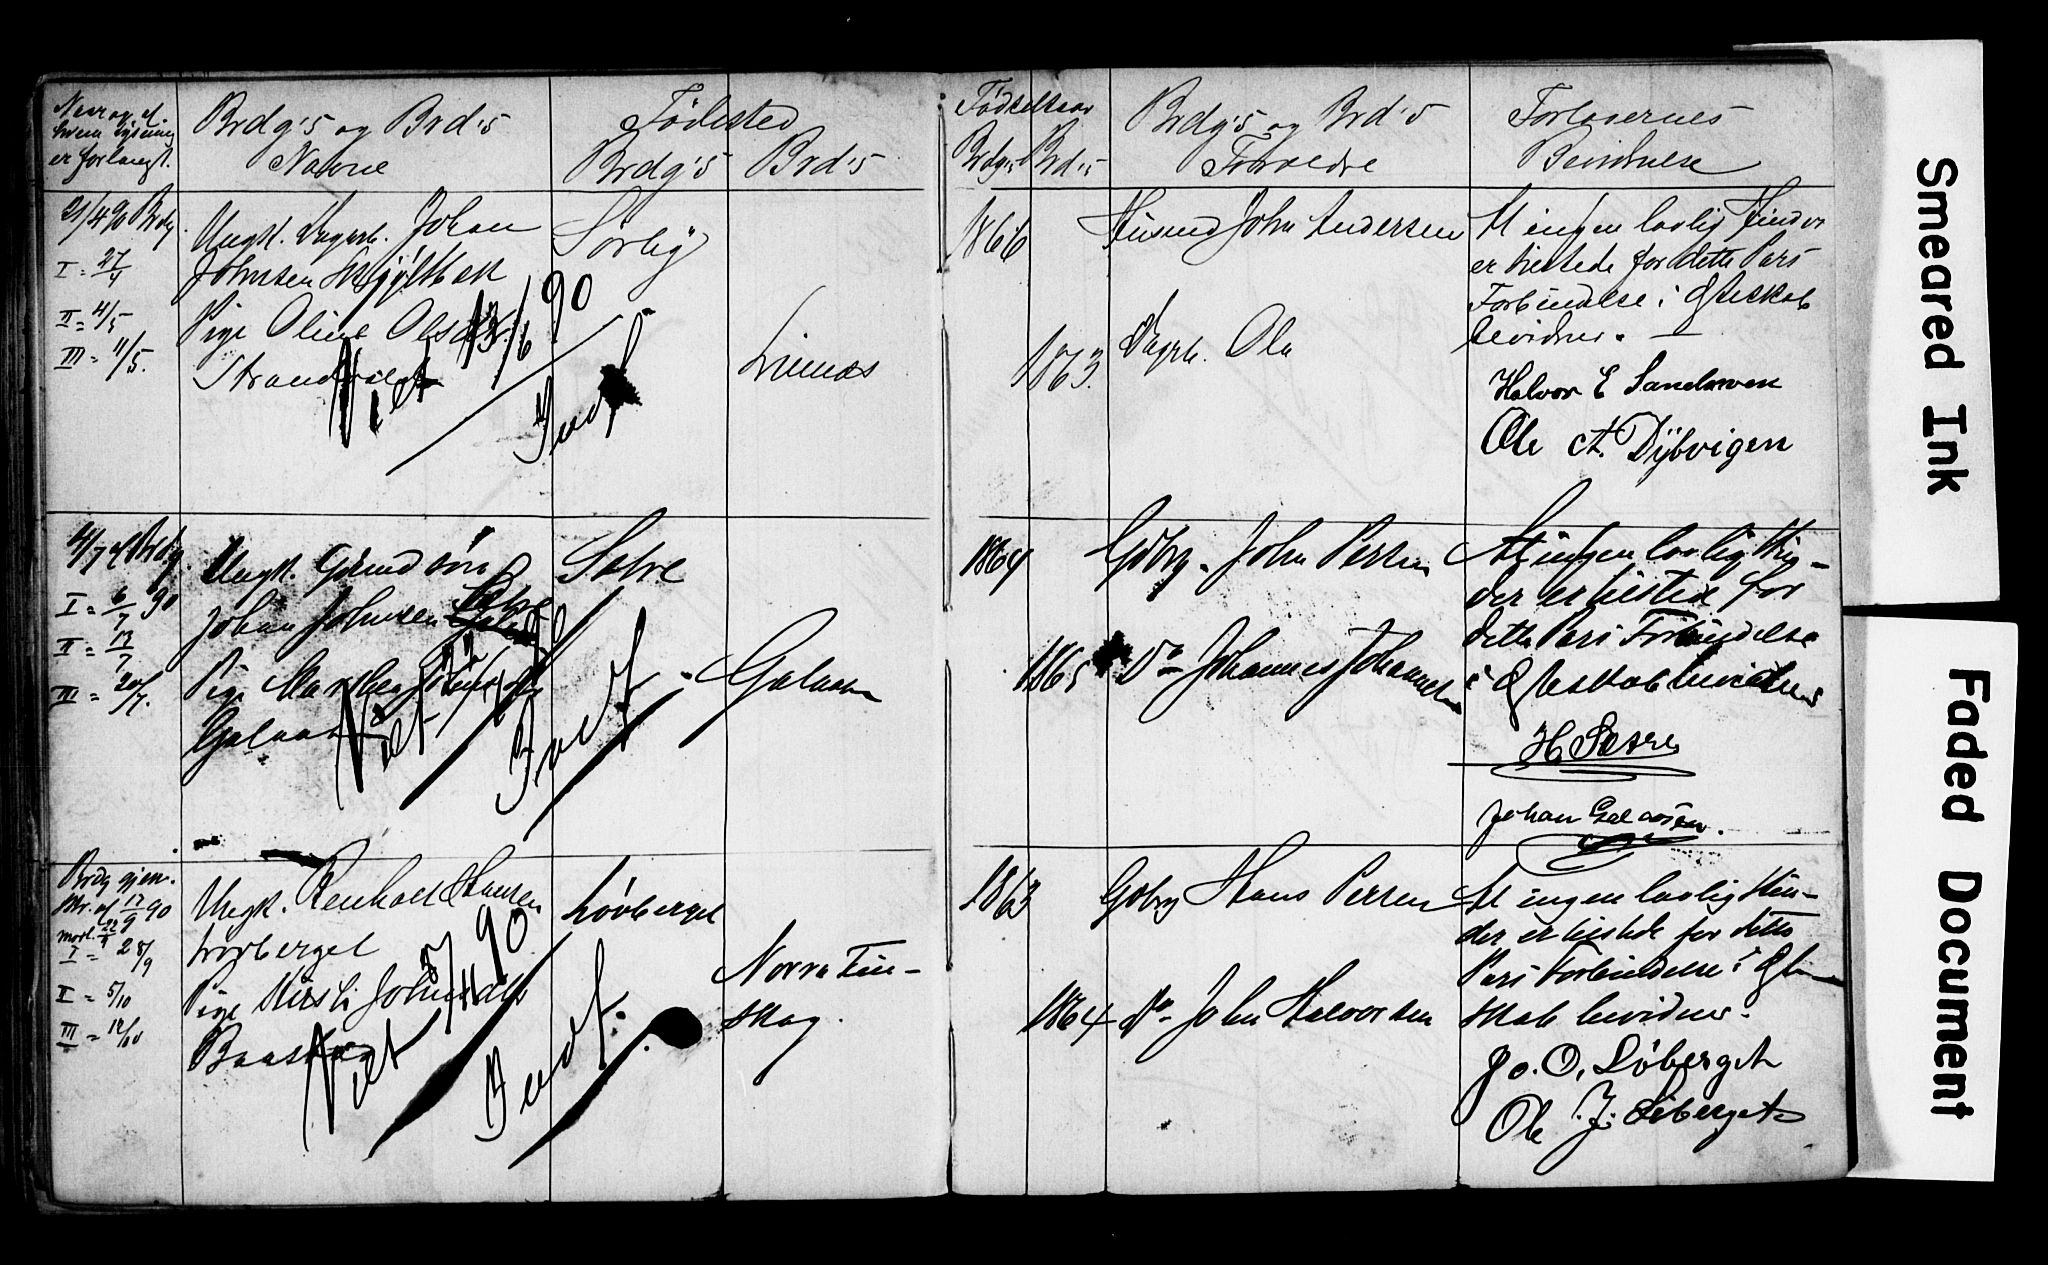 Naar og af
hvem lysning
er forlangt.
Brdg's og Brd's
Navne
Fødested
Brdg's
Brd's
Fødselsaar
Brdg's
Brd's
Brdg's og Brd's
Forældre
Forlovernes
Bevidnelse
21/4 90 Brdg.
I = 27/4
II = 4/5
III = 11/5.
Ungk. Dagarb. Johan
Johnsen
Pige Oline Olsd.
Viet 13/6 90
Sørby
Linnæs
1866
1863.
Husmd John Andersen
Dagarb. Ola
At ingen lovlig Hinder
er tilstede for dette Pars
Forbindelse i Ægteskab
bevidnes. —
Halvor E Sandmoen
Ole A. Dybvigen
4/7 af Brdg.
I = 6/7 90
II = 13/7
III = 20/7.
Ungk. Grmd søn
Johan Johnsen Sætre
Pige
Galaasen
Viet
Sætre
Galaasen
1864
1865
Gdbrg. John Persen
Do Johannes Johannes
At ingen lovlig Hin-
der er tilstede for
dette Pars Forbindelse
i Ægteskab bevidnes
H Sætre
Johan Galaasen.
Brdg gjen.
Skr. af 17/9 90
I = 28/9
II = 5/10
III = 12/10
Ungk. Renholt Hansen
Løvberget
Pige Kirsti Johnsdtr
Viet 5/11 90
Løvberget
Norra Fin-
skog.
1863
1864
Gdbrg Hans Persen
Do John Halvorsen
At ingen lovlig Hin-
der er tilstede for dette
Pars Forbindelse i Ægte
skab bevidnes.
Jo. O. Løberget
Ole J. Løberget
Smeared Ink
Faded Document